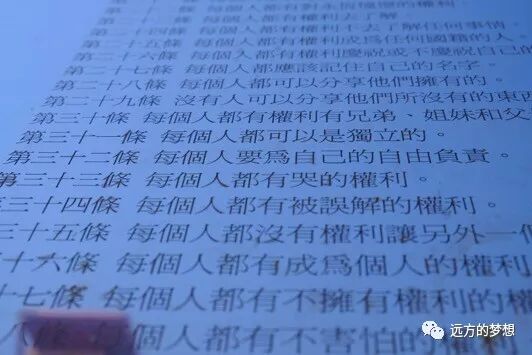 每個人都有
第二十三條 每個人都有權利去了解
第二十四條 每個人都有權利不去了解任何事情。
第二十五條 每個人都有權利成爲任何國籍的人。
第二十六條 每個人都有權利慶祝或不慶祝自己的
第二十七條 每個人都應該記住自己的名字。
第二十八條 每個人都可以分享他們擁有的。
第二十九條 沒有人可以分享他們所沒有的東西
第三十條 每個人都有權利有兄弟、姐妹和父
第三十一條 每個人都可以是獨立的。
第三十二條 每個人要爲自己的自由負責。
第三十三條 每個人都有哭的權利。
三十四條 每個人都有被誤解的權利。
三十五條 每個人都沒有權利讓另外一個
十六條 每個人都有成爲個人的權利
十七條 每個人都有不擁有權利的權
八條 每個人都有不害怕的
远方的梦想